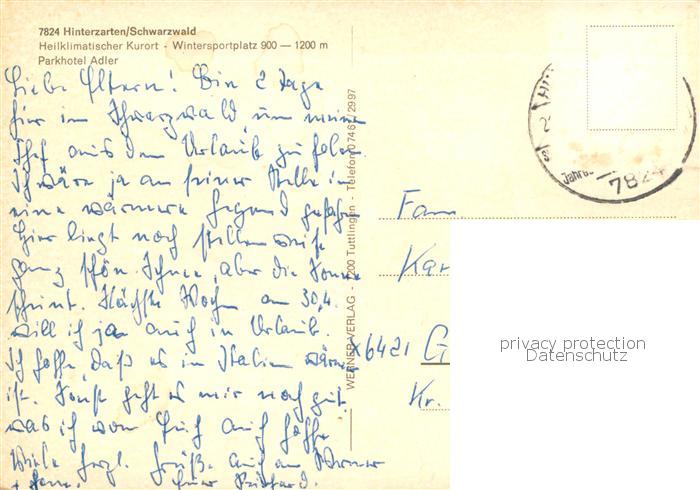 7824 Hinterzarten/Schwarzwald
Heilklimatischer Kurort - Wintersportplatz 900 — 1200 m
Parkhotel Adler
Liebe Eltern! Bin 2 Tage
hier im Schwarzwald, um meinen
Chef aus dem Urlaub zu holen.
Ich wäre ja an seiner Stelle in
eine wärmere Gegend gefahren
Hier liegt noch stellenweise
ganz schön Schnee, aber die Sonne
scheint. Nächste Woche am 30.4.
will ich ja auch in Urlaub.
Ich hoffe, daß es in Italien wärmer
ist. Sonst geht es mir noch gut
was ich von Euch auch hoffe
Viele herzl. Grüße auch an Werner
+ Euer
WERNER VERLAG - 7200 Tuttlingen - Telefon 0746 2997
7824
Fam.
Kar
6421 G
Kr.
privacy protection
Datenschutz